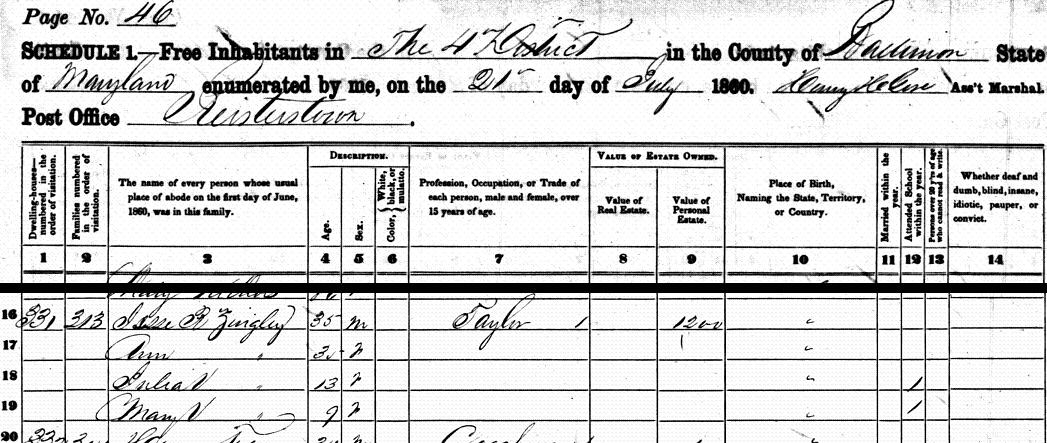 Page No. 46
SCHEDULE 1.—Free Inhabitants in The 4th District in the County of Baltimore State
of Maryland enumerated by me, on the 21st day of July 1860. Henry H Ass't Marshal.
Post Office Reisterstown .
DESCRIPTION. VALUE OF ESTATE OWNED.
Dwelling-houses—numbered in the order of visitation.
Families numbered in the order of visitation.
The name of every person whose usual
place of abode on the first day of June,
1860, was in this family.
Age.
Sex.
Color, { White, black, or mulatto.
Profession, Occupation, or Trade of
each person, male and female, over
15 years of age.
Value of
Real Estate.
Value of
Personal
Estate.
Place of Birth,
Naming the State, Territory,
or Country.
Married within the year.
Attended School within the year.
Persons over 20 y'rs of age who cannot read & write.
Whether deaf and
dumb, blind, insane,
idiotic, pauper, or
convict.
1 2 3 4 5 6 7 8 9 10 11 12 13 14
Mary
16 331 313 Jesse R Zingley 35 m Taylor 1 1200 "
17 Ann " f "
18 Julia V " 13 f " 1
19 Mary V " 9 f " 1
20